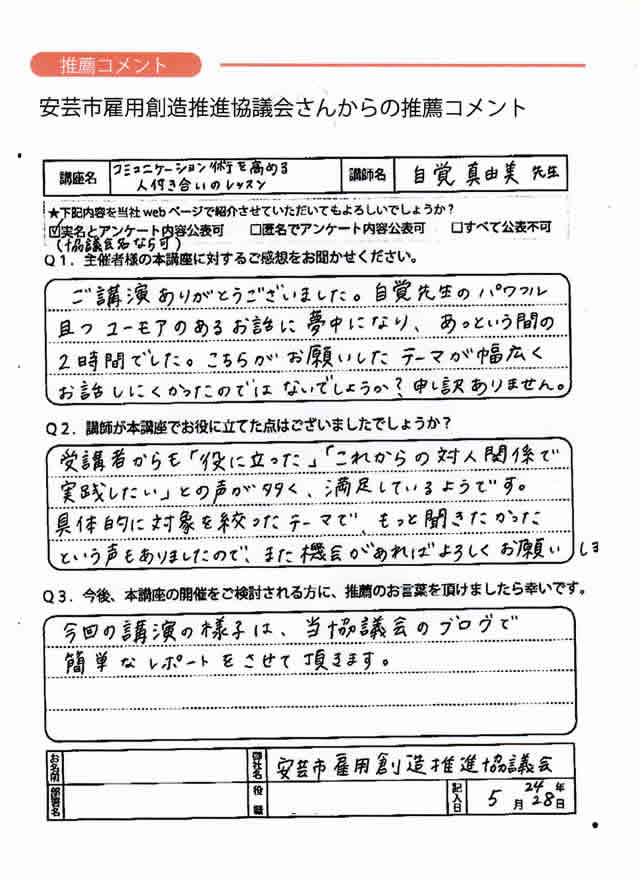 推薦コメント
安芸市雇用創造推進協議会さんからの推薦コメント
講座名 コミュニケーション術を高める 人付き合いのレッスン 講師名 自覚 真由美 先生
★下記内容を当社webページで紹介させていただいてもよろしいでしょうか?
☑実名とアンケート内容公表可 □匿名でアンケート内容公表可 □すべて公表不可
(協議会名なら可)
Q1. 主催者様の本講座に対するご感想をお聞かせください。
ご講演ありがとうございました。自覚先生のパワフル
且つユーモアのあるお話に夢中になり、あっという間の
2時間でした。こちらがお願いしたテーマが幅広く
お話しにくかったのではないでしょうか?申し訳ありません。
Q2. 講師が本講座でお役に立てた点はございましたでしょうか?
受講者からも「役に立った」「これからの対人関係で
実践したい」との声が多く、満足しているようです。
具体的に対象を絞ったテーマで、もっと聞きたかった
という声もありましたので、また機会があればよろしくお願いしま
Q3. 今後、本講座の開催をご検討される方に、推薦のお言葉を頂けましたら幸いです。
今回の講演の様子は、当協議会のブログで
簡単なレポートをさせて頂きます。
お名前 御社名 安芸市雇用創造推進協議会
部署名 役職 記入日 24年 5月28日